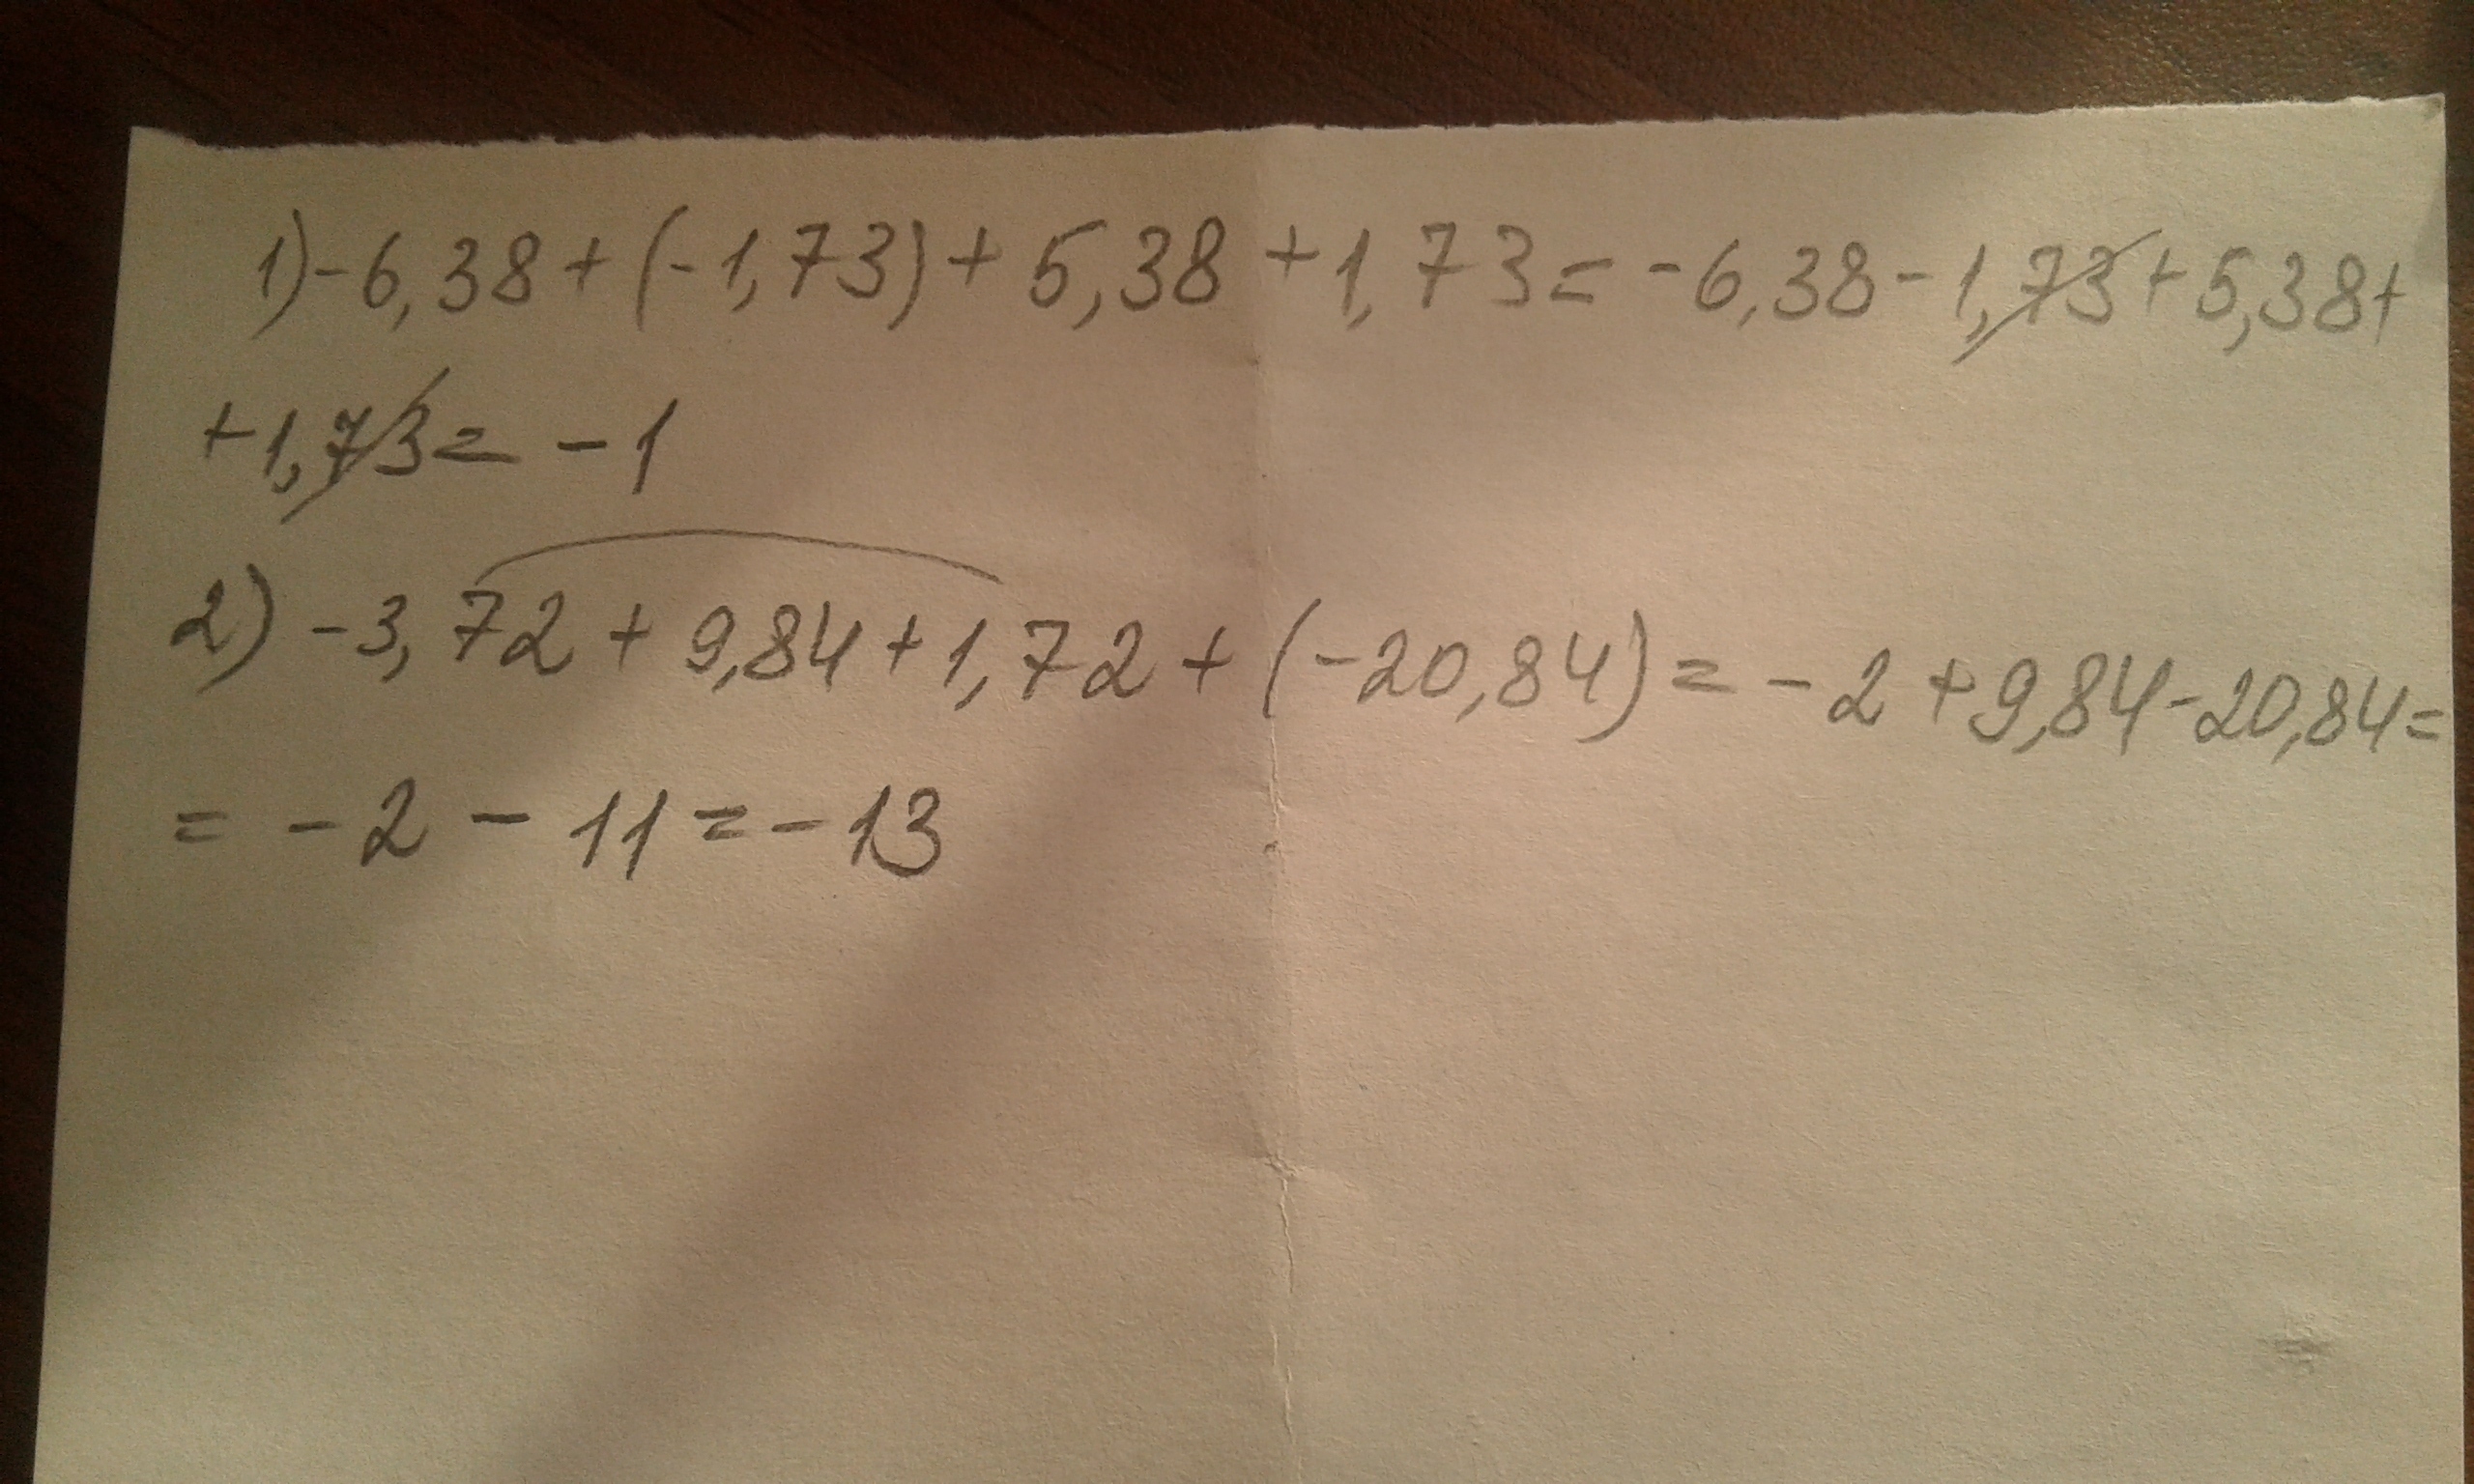 1) -6,38 + (-1,73) + 5,38 + 1,73 = -6,38 - 1,73 + 5,38 +
+ 1,73 = -1
2) -3,72 + 9,84 + 1,72 + (-20,84) = -2 + 9,84 - 20,84 =
= -2 - 11 = -13